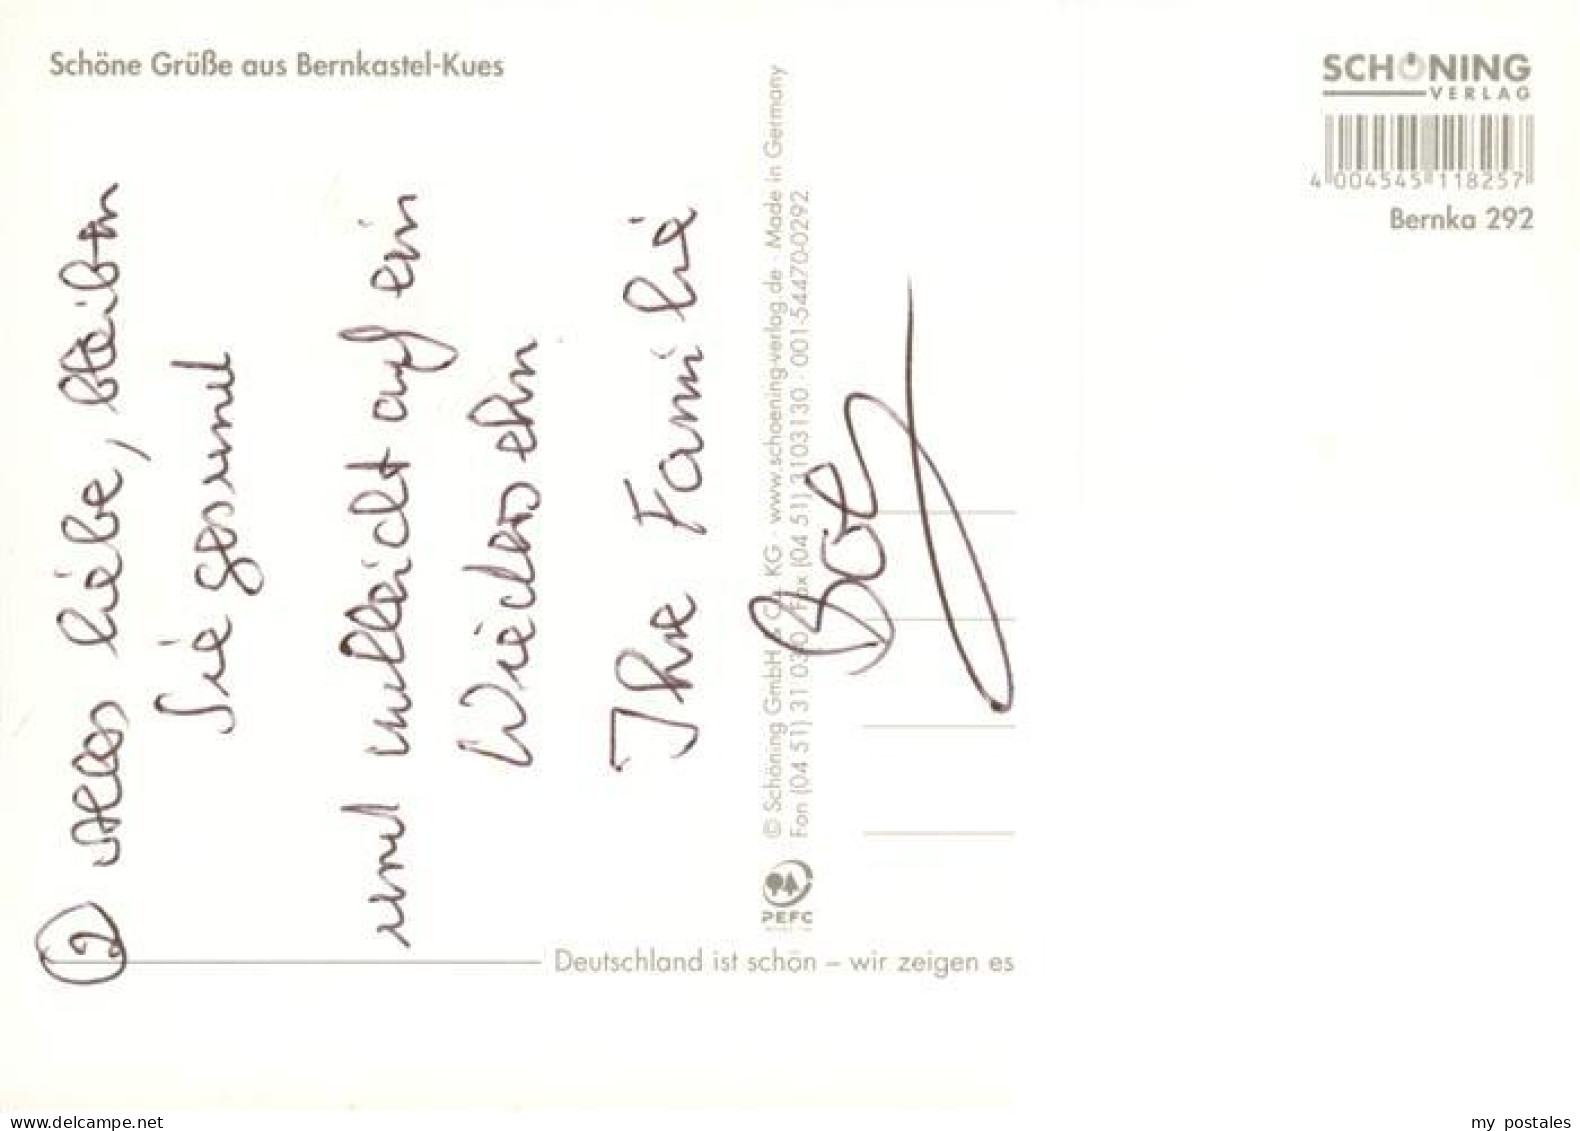 Schöne Grüße aus Bernkastel-Kues
SCHÖNING
VERLAG
4 004545 118257
Bernka 292
2
alles liebe, bleiben
Sie gesund
und vielleicht auf ein
Wiedersehn
Ihre Familie
© Schöning GmbH & Co. KG · www.schoening-verlag.de · Made in Germany
Fon (04 51) 31 03 0 · Fax (04 51) 3103130 · 001-54470-0292
PEFC
Deutschland ist schön – wir zeigen es
www.delcampe.net
my postales